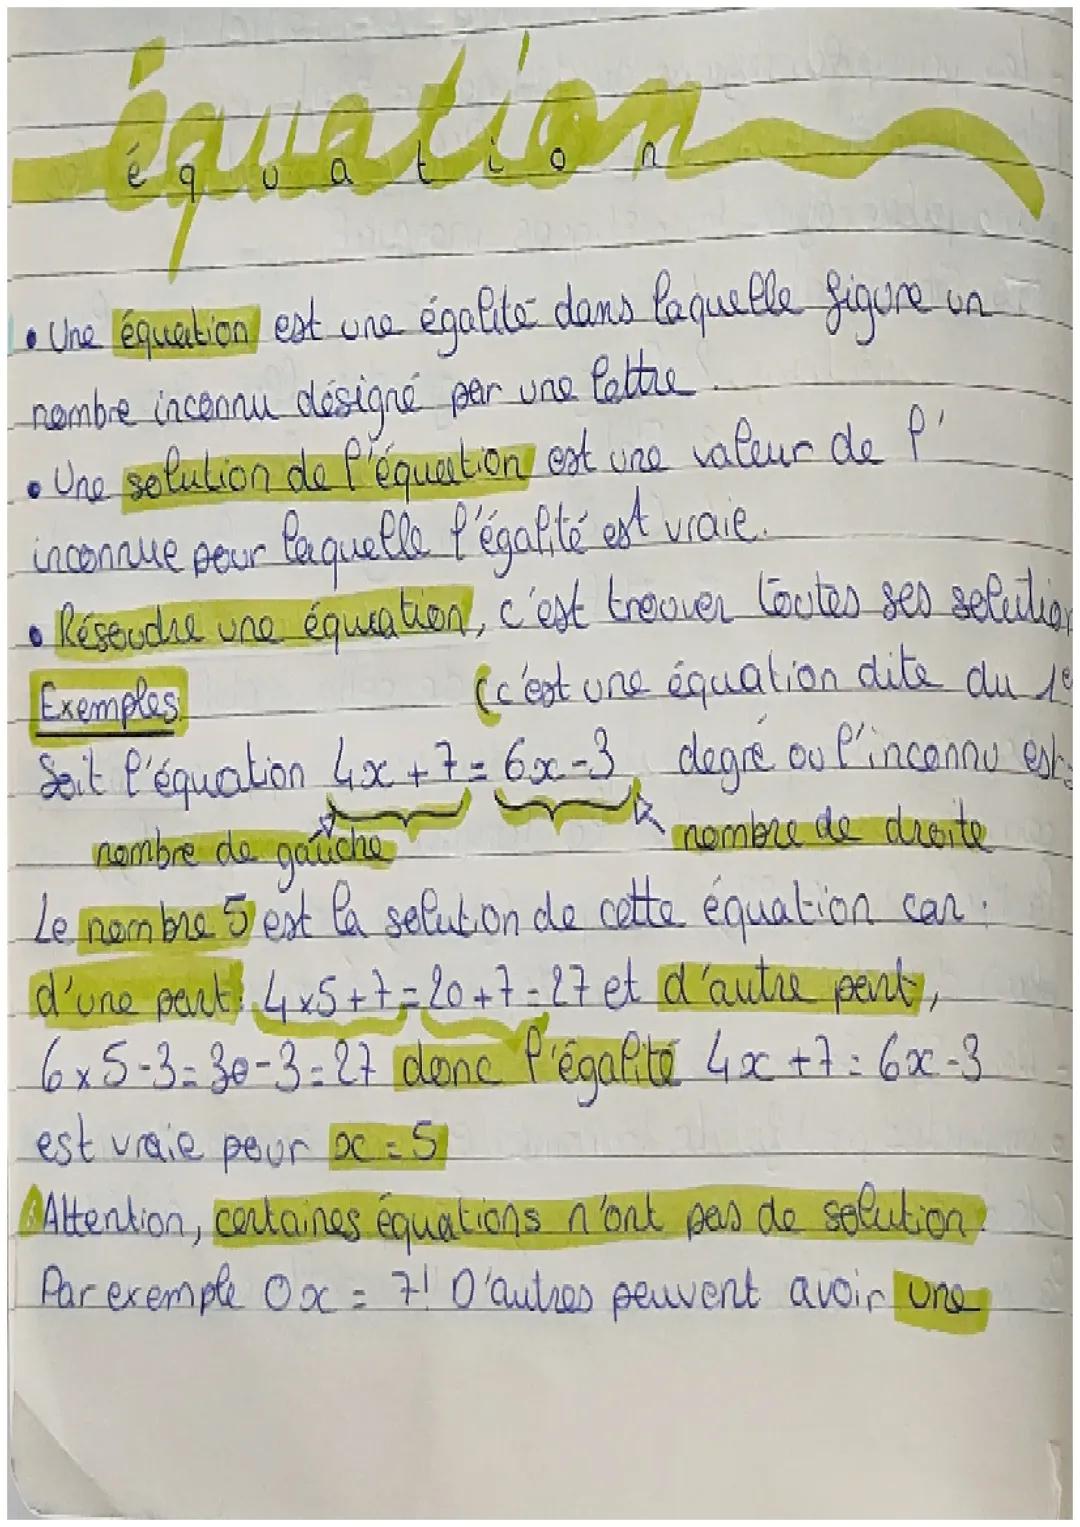 équation
équation
• Une équation est une égalité dans laquelle figure un
nombre inconnu désigné par une lettre.
• Une solution de l'équation est une valeur de l'
inconnue pour laquelle l'égalité est vraie.
• Résoudre une équation, c'est trouver toutes ses solution
Exemples: (c'est une équation dite du 1e
Soit l'équation 4x + 7 = 6x - 3 degré ou l'inconnu est
nombre de gauche nombre de droite
Le nombre 5 est la solution de cette équation car :
d'une part: 4x5+7=20+7=27 et d'autre part,
6x5-3=30-3=27 donc l'égalité 4x+7=6x-3
est vraie pour x=5
Attention, certaines équations n'ont pas de solution.
Par exemple 0x = 7! D'autres peuvent avoir une